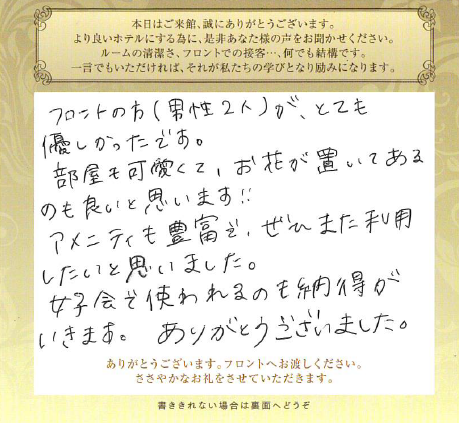 本日はご来館、誠にありがとうございます。
より良いホテルにする為に、是非あなた様の声をお聞かせください。
ルームの清潔さ、フロントでの接客…、何でも結構です。
一言でもいただければ、それが私たちの学びとなり励みになります。
フロントの方(男性2人)が、とても
優しかったです。
部屋も可愛くて、お花が置いてある
のも良いと思います!!
アメニティも豊富で、ぜひまた利用
したいと思いました。
女子会で使われるのも納得が
いきます。 ありがとうございました。
ありがとうございます。フロントへお渡しください。
ささやかなお礼をさせていただきます。
書ききれない場合は裏面へどうぞ